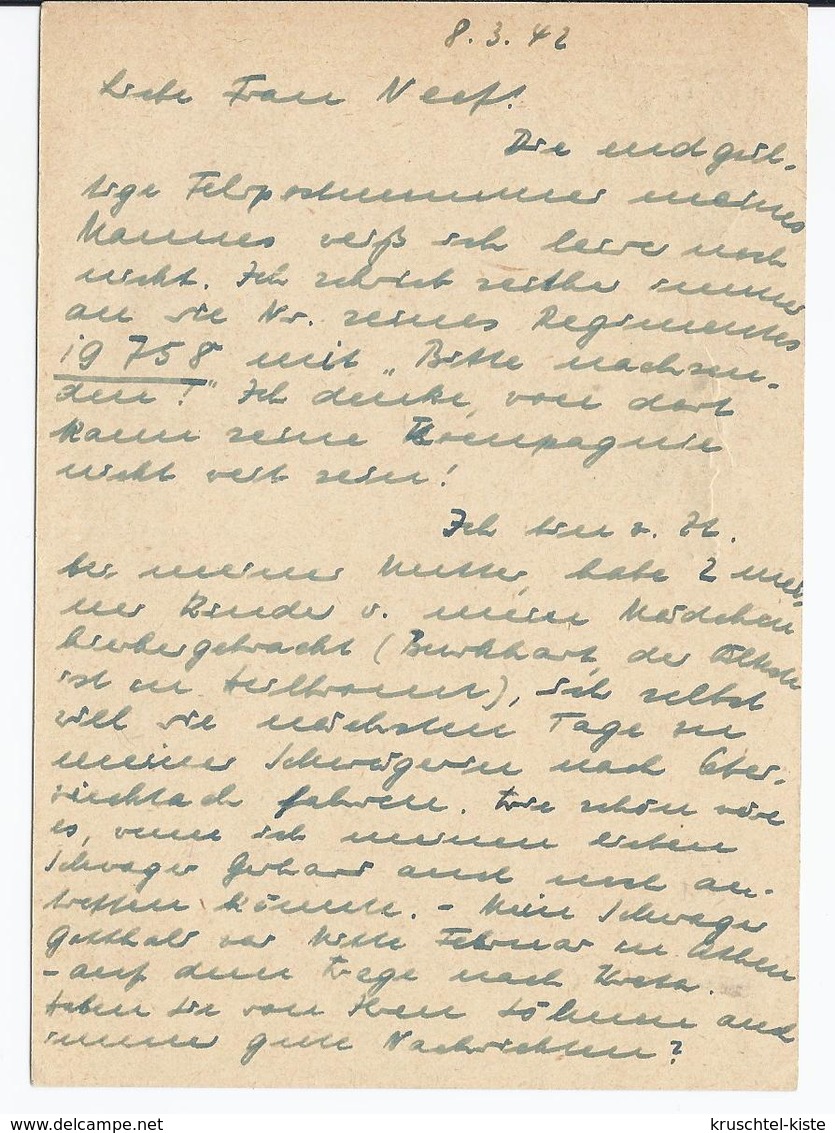 8. 3. 42
Liebe Frau Neef!
Die endgül-
tige Feldpostnummer meines
Mannes weiß ich leider noch
nicht. Ich schrieb seither immer
an die Nr. seines Regimentes
19 758 mit „Bitte nachsen-
den!" Ich denke, von dort
kann seine Kompagnie
nicht weit sein!
Ich bin z. Zt.
bei meiner Mutter, habe 2 mei-
ner Kinder u. mein Mädchen
hierher gebracht (Burkhart, der Älteste
ist in Heilbronn), ich selbst
will die nächsten Tage zu
meiner Schwägerin nach Ober-
viechtach fahren. Wie schön wäre
es, wenn ich meinen lieben
Schwager Gerhard auch noch an-
treffen könnte. - Mein Schwager
Gotthold war Mitte Februar in Athen
- auf dem Wege nach Kreta.
Haben Sie von Ihren Söhnen auch
immer gute Nachrichten?
kruschtel-kiste
www.delcampe.net